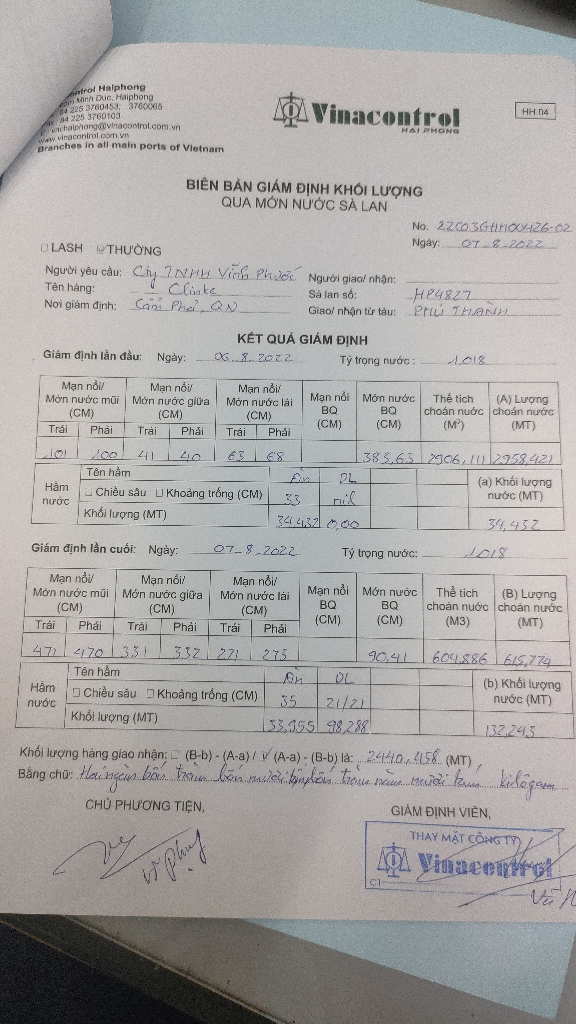 control Haiphong
Minh Duc, Haiphong
84 225 3760453; 3760065
84 225 3760103
vnchaiphong@vinacontrol.com.vn
www.vinacontrol.com.vn
Branches in all main ports of Vietnam
Vinacontrol
HAI PHONG
HH.04
BIÊN BẢN GIÁM ĐỊNH KHỐI LƯỢNG
QUA MỚN NƯỚC SÀ LAN
No.
Ngày: 07-8-2022
LASH THƯỜNG
Người yêu cầu: Cty TNHH Vĩnh Phước Người giao/ nhận:
Tên hàng: Clinke Sà lan số: HP4827
Nơi giám định: Cẩm Phả, QN Giao/ nhận từ tàu: PHÚ THÀNH
KẾT QUẢ GIÁM ĐỊNH
Giám định lần đầu: Ngày: 06.8.2022 Tỷ trọng nước: 1.018
Mạn nổi/ Mớn nước mũi (CM) Mạn nổi/ Mớn nước giữa (CM) Mạn nổi/ Mớn nước lái (CM) Mạn nổi BQ (CM) Mớn nước BQ (CM) Thể tích choán nước (M³) (A) Lượng choán nước (MT)
Trái Phải Trái Phải Trái Phải
101 100 41 40 63 68 383,63 2906,111 2958,421
Hầm nước Tên hầm DL (a) Khối lượng nước (MT)
Chiều sâu Khoảng trống (CM) 33 nil
Khối lượng (MT) 34,432 0,00 34,432
Giám định lần cuối: Ngày: 07-8-2022 Tỷ trọng nước: 1.018
Mạn nổi/ Mớn nước mũi (CM) Mạn nổi/ Mớn nước giữa (CM) Mạn nổi/ Mớn nước lái (CM) Mạn nổi BQ (CM) Mớn nước BQ (CM) Thể tích choán nước (M3) (B) Lượng choán nước (MT)
Trái Phải Trái Phải Trái Phải
471 470 331 332 271 275 90,41 604,886 615,774
Hầm nước Tên hầm DL (b) Khối lượng nước (MT)
Chiều sâu Khoảng trống (CM) 35 21/21
Khối lượng (MT) 33,955 98,288 132,243
Khối lượng hàng giao nhận: (B-b) - (A-a) / (A-a) - (B-b) là: 2440,458 (MT)
Bằng chữ: Hai ngàn bốn trăm bốn mươi tấn bốn trăm năm mươi tám kilôgam
CHỦ PHƯƠNG TIỆN, GIÁM ĐỊNH VIÊN,
THAY MẶT CÔNG TY
Vinacontrol